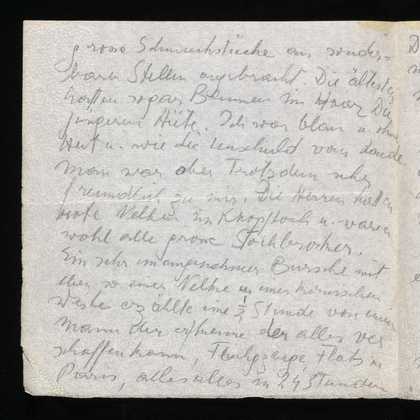 grosse Schmuckstücke an sonder-
baren Stellen angebracht. Die ältesten
hatten sogar Blumen im Haar Die
jüngeren Hüte. Ich war blau u. ohne
Hut u. wie die Unschuld vom Lande
Man war aber trotzdem sehr
freundlich zu mir. Die Herren hatten
rote Nelken im Knopfloch u. waren
wohl alle
Ein sehr unangenehmer Bursche mit
eben so einer Nelke u. einer
Weste erzählte eine ½ Stunde von einem
Mann der alles ver
schaffen kann, Flugzeuge Flats in
Paris, alles alles in 24 Stunden